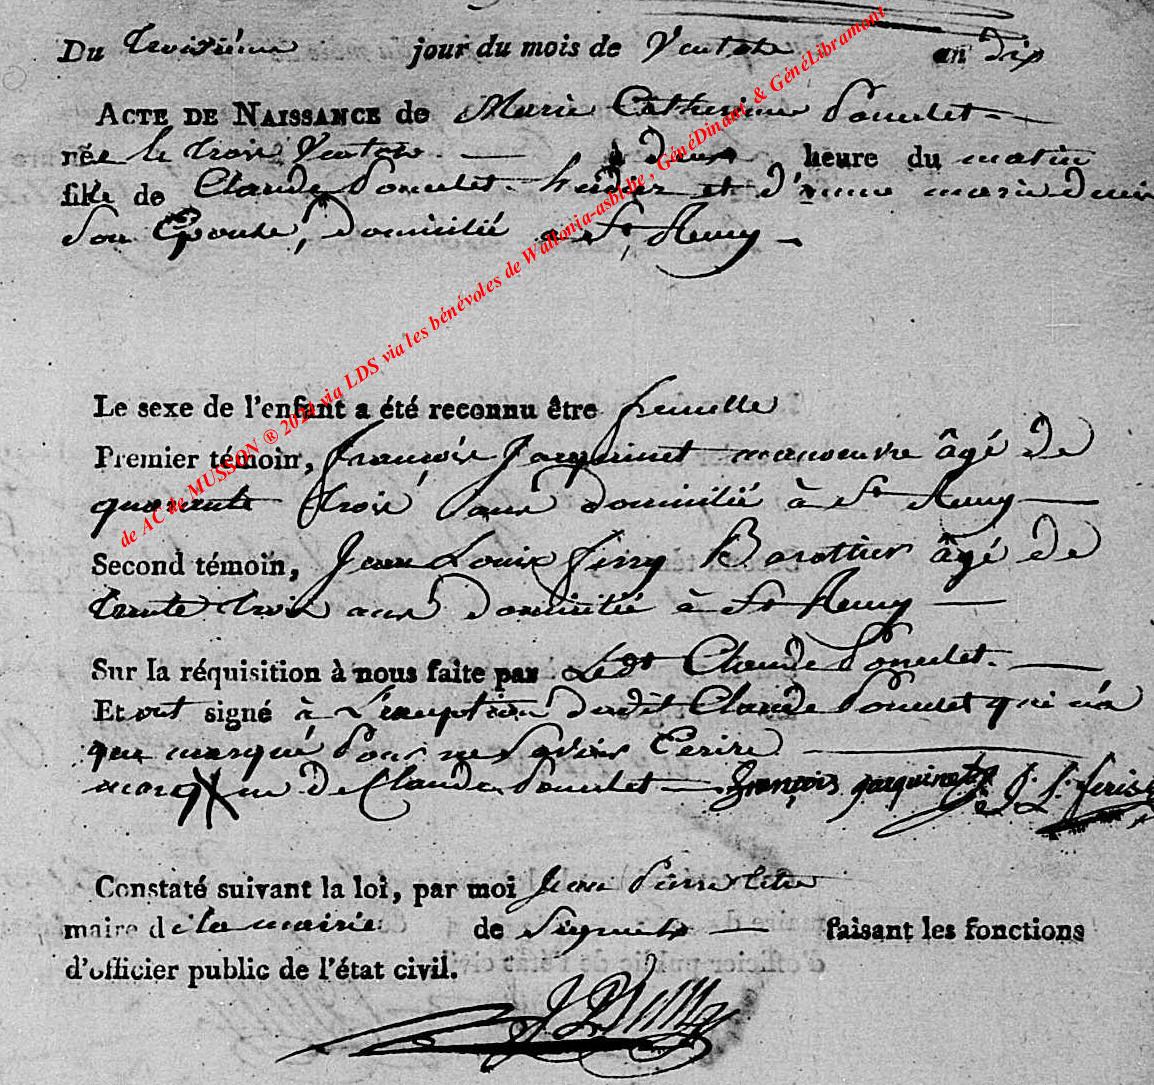 Du troisième jour du mois de Ventose an dix
ACTE DE NAISSANCE de Marie Catherine Poncelet
née le trois Ventose à deux heure du matin
fille de Claude Poncelet et d'anne marie
Son Epouse, domicilié a St Remy
Le sexe de l'enfant a été reconnu être femelle
Premier témoin, françois Jacquinet manoeuvre âgé de
quarante trois ans domicilié à St Remy
Second témoin, Jean Louis âgé de
trente trois ans domicilié à St Remy
Sur la réquisition à nous faite par Ledt Claude Poncelet.
Et ont signé à L'exception dudit Claude Poncelet qui n'a
que marqué pour ne Savoir Ecrire
marque de Claude Poncelet françois jacquinet J. L.
Constaté suivant la loi, par moi Jean Pierre
maire de la mairie de Signeulx faisant les fonctions
d'officier public de l'état civil.
de AC de MUSSON ® 2021 via LDS via les bénévoles de Wallonia-asbl.be , GénéDinant & GénéLibramont